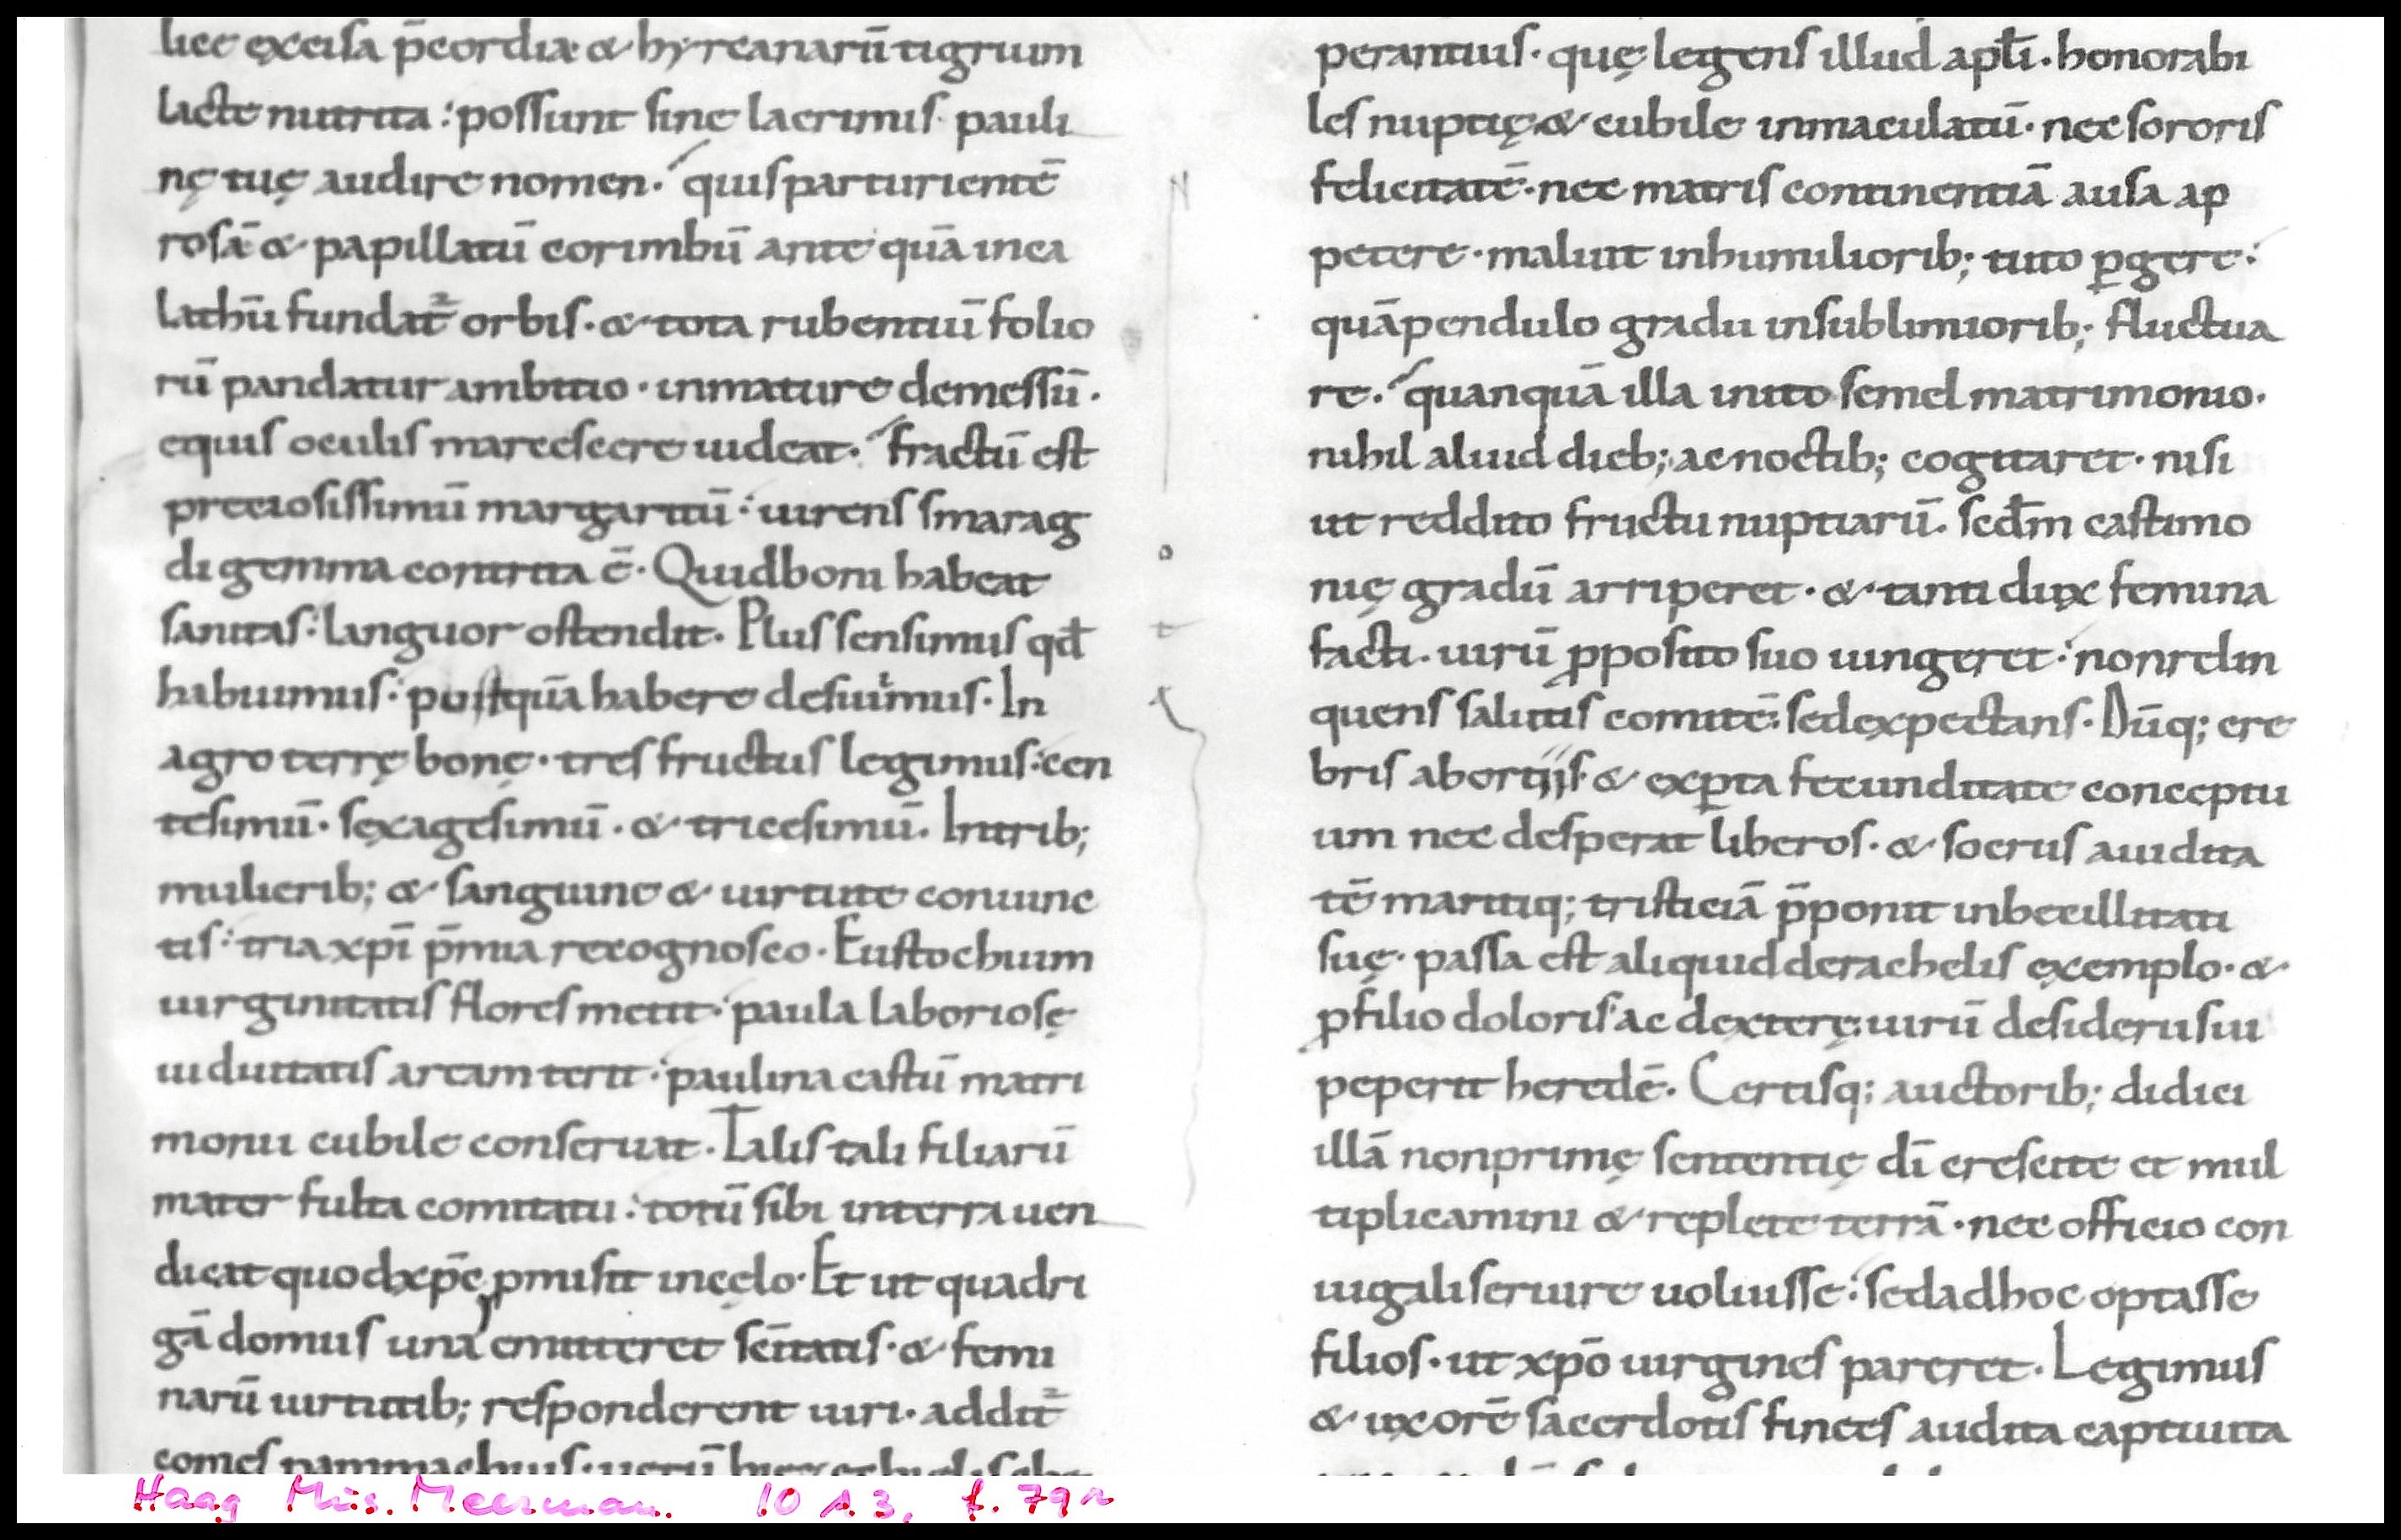 lice excisa p̄cordia & hyrcanarū tigrium
lacte nutrita: possunt sine lacrimis pauli
nę tuę audire nomen. quis parturientē
rosā & papillatū corimbū ante quā in ca
lathū fundat᷑ orbis. & tota rubentiū folio
rū pandatur ambitio. inmature demessū.
equis oculis marcescere uideat. fractū est
preciosissimū margaritū: uirens smarag
di gemma contrita ē. Quid boni habeat
sanitas: languor ostendit. Plus sensimus qđ
habuimus: postquā habere desiuimus. In
agro terrę bonę. tres fructus legimus: cen
tesimū. sexagesimū. & tricesimū. In trib;
mulierib; & sanguine & uirtute coniunc
tis: tria xp̄i p̄mia recognosco. Eustochium
uirginitatis flores metit: paula laboriosę
uiduitatis aream terit: paulina castū matri
monii cubile conseruat. Talis tali filiarū
mater fulta comitatu: totū sibi in terra uen
dicat quod xp̄c ꝓmisit in cęlo. Et ut quadri
gā domus una emitteret sc̄itatis. & femi
narū uirtutib; responderent uiri. addit᷑
comes pammachius: uerū
perantius. quę legens illud apłi. honorabi
les nuptię & cubile inmaculatū. nec sororis
felicitatē. nec matris continentiā ausa ap
petere. maluit in humiliorib; tuto ꝑgere:
quā pendulo gradu in sublimiorib; fluctua
re. quanquā illa inito semel matrimonio.
nihil aliud dieb; ac noctib; cogitaret. nisi
ut reddito fructu nuptiarū. scđm castimo
nię gradū arriperet. & tanti dux femina
facti. uirū ꝓposito suo iungeret: non relin
quens salutis comitē: sed expectans. Dūq; cre
bris abortiis. & exꝑta fecunditate conceptu
um nec desperat liberos. & socrus auidita
tē maritiq; tristiciā p̄ponit inbecillitati
suę. passa est aliquid de rachelis exemplo. &
ꝓ filio doloris ac dexterę: uirū desiderii sui
peperit heredē. Certisq; auctorib; didici
illā non primę sententię dī crescite et mul
tiplicamini & replete terrā. nec officio con
iugali seruire uoluisse: sed ad hoc optasse
filios. ut xp̄o uirgines pareret. Legimus
& uxorē sacerdotis finees audita captiuita
Haag Mus. Meerman. 10 A 3, f. 79r